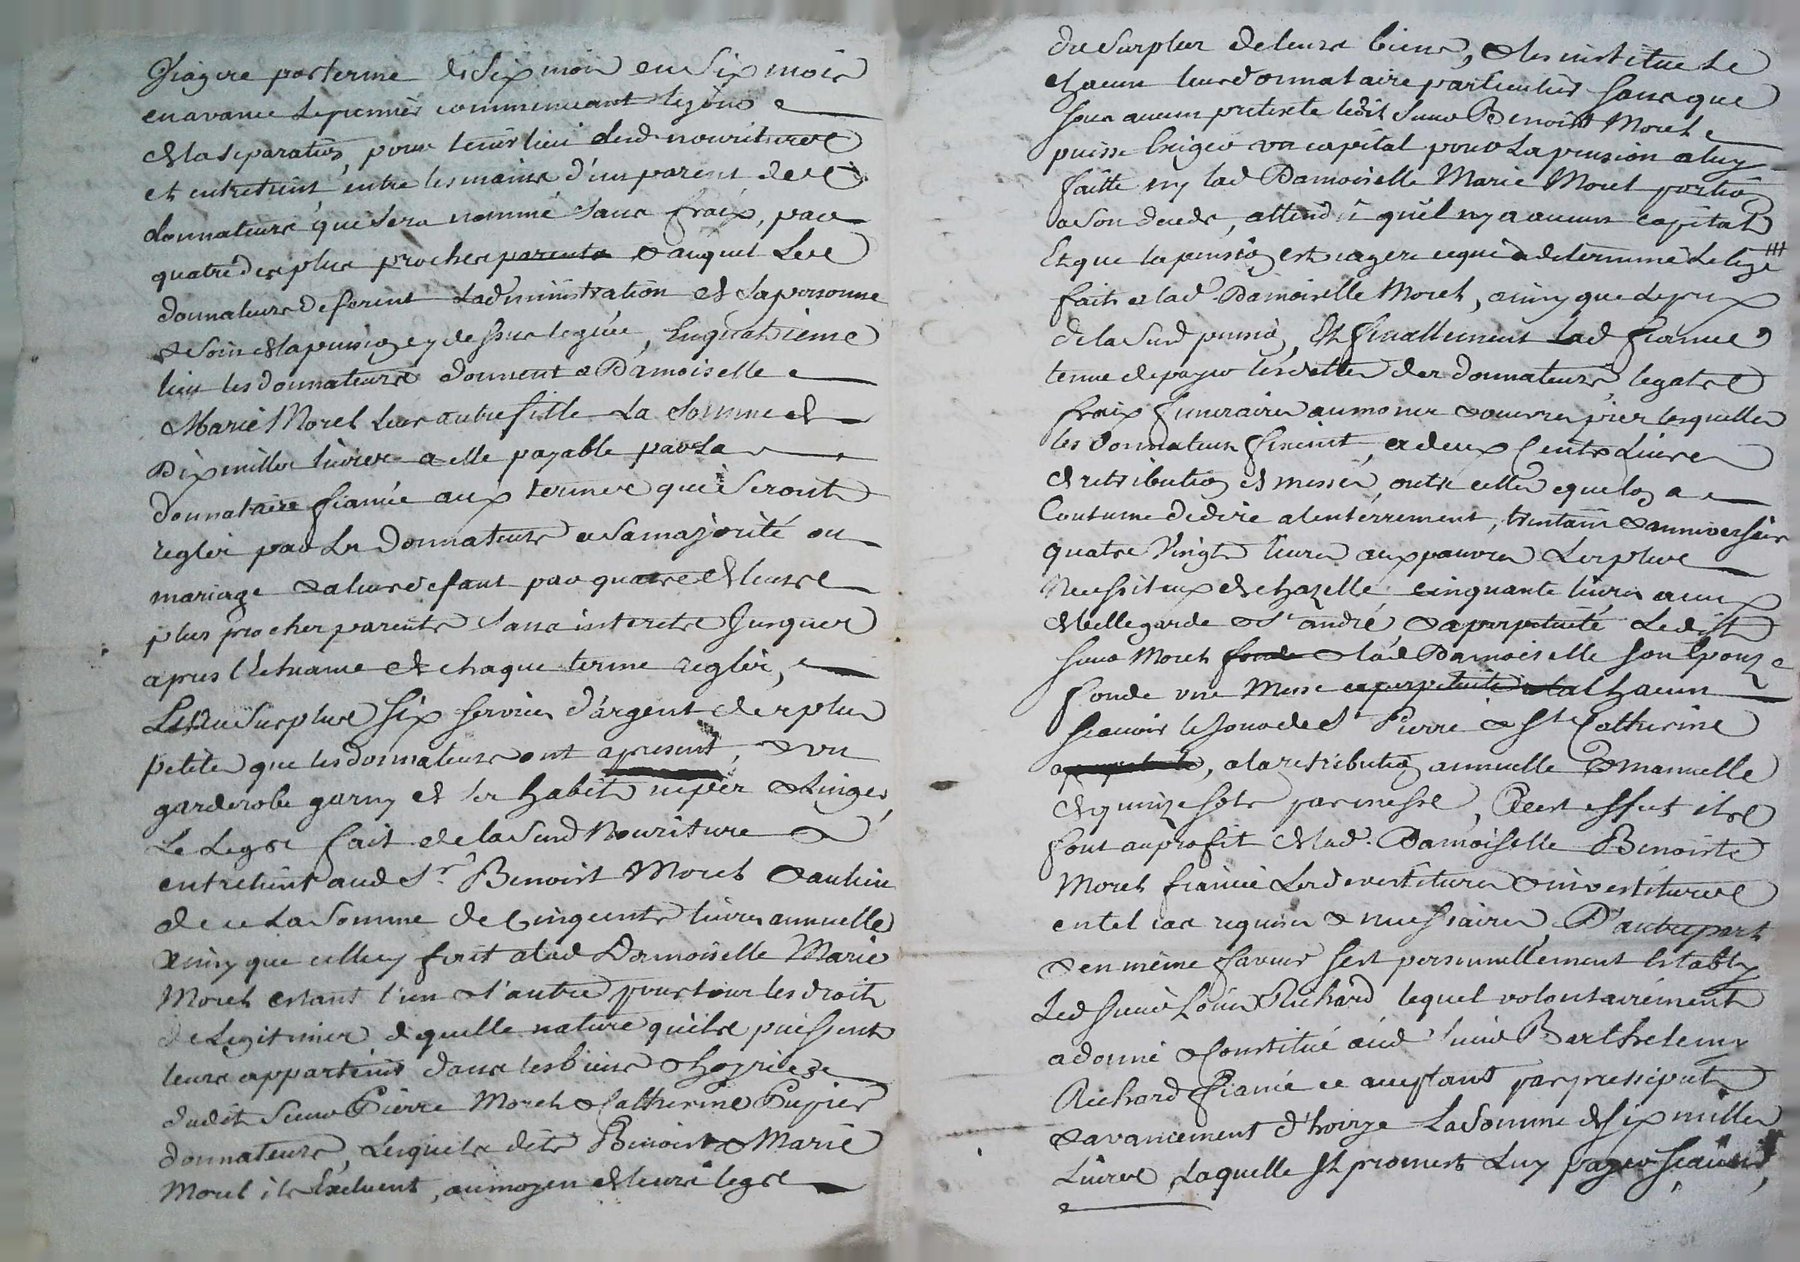 viagere par terme de six mois en six mois
en avance le premier commencant le jour
de la separation, pour tenir lieu desd nourriture
et entretient entre les mains d'un parent des
donnateurs qui sera nommé sans fraix, par
quatre des plus proches parents & auquel les
donnateurs deferent l'administration de sa personne
& soin de la pension cy dessus leguée, En quatrieme
lieu les donnateurs donnent a Damoiselle
Marie Morel leur autre fille la somme de
Dix milles livres a elle payable par la
donnataire fiancée aux termes qui seront
reglés par les Donnateurs a sa majorité ou
mariage & a leur defaut par quatre de leurs
plus proches parents sans interets jusques
apres l'Echeance de chaque terme reglés,
Et du surplus six services d'argent des plus
petits que les donnateurs ont apresent, & un
garderobe garny de ses habits nipes & linges,
Le Legs fait de la susd Nourriture &
entretient aud Sr. Benoist Morel & au lieu
de ce La somme de Cinq cents livres annuelle
ainsy que celluy fait a lad Damoiselle Marie
Morel estant l'un & l'autre pour tous les droits
de Legitimes de quelle nature qu'ils puissent
leurs appartenir dans les biens & hoyries
dudit Sieur Pierre Morel & Catherine Pupier
donnateurs, Lesquels dits Benoist & Marie
Morel ils Excluent, au moyen de leurs legs
du surplus de leurs biens, & les institue Le
chacun leurs donnataire particulier sans que
sous aucun pretexte ledit Sieur Benoist Morel
puisse Exiger un capital pour La pension a luy
faitte ny lad Damoiselle Marie Morel portion
a son deceds, attendû qu'il ny a aucun capital
Et que la pension est viagere ce qui a determiné Le legs
fait a lad. Damoiselle Morel, ainsy que le prix
de la susd pension, Et finallement lad fiancée
tenue de payer les dettes des donnateurs legats
fraix funeraires aumones & œuvres pies lesquelles
les donnateurs fixent, a deux Cents Livres
de retribution de messes, outre celles que lon a
Coutume de dire a l'enterrement, trentain & anniversaire
quatre Vingt livres aux pauvres Les plus
Necessiteux de chazelle, cinquante livres a ceux
de Bellegarde & St andré, & a perpetuité Ledit
Sieur Morel fonde & lad Damoiselle son Epouze
fonde une Messe a perpetuité chacun
scavoir le jour de St Pierre & Ste Catherine
a perpetuité, a la retribution annuelle & manuelle
de quinze sols par messe, Pour cet effet ils
font au profit de lad. Damoiselle Benoiste
Morel fiancée Les devestitures & investitures
en tel cas requises & necessaires, D'autre part
& en même faveur s'est personnellement Etably
Led Sieur Loüis Richard, lequel volontairement
a donné & Constitué aud Sieur Barthelemy
Richard fiancé ce acceptant par preciput
& avancement d'hoirye La somme de six milles
Livres, Laquelle Il promet Luy payer scavoir,